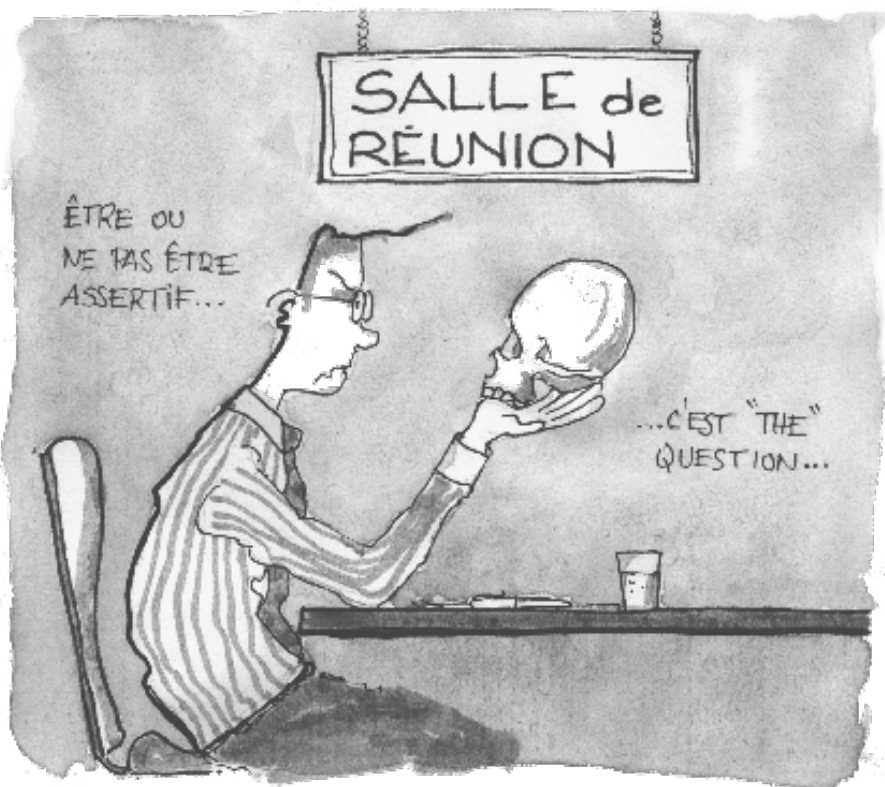 SALLE de
RÉUNION
ÊTRE OU
NE PAS ÊTRE
ASSERTIF...
...C'EST "THE"
QUESTION...